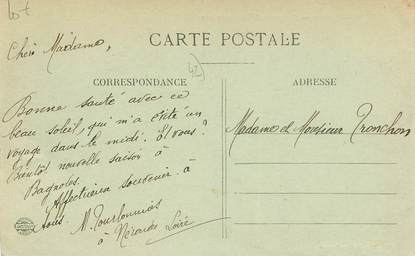 Lot
Chère Madame,
CARTE POSTALE
42
CORRESPONDANCE
ADRESSE
Bonne santé avec ce
beau soleil, qui m'a évité un
voyage dans le midi. Et vous?
Bientôt nouvelle saison à
Bagnoles.
Affectueux souvenir à
tous.
M.
à Loire
Madame et Monsieur Tronchon